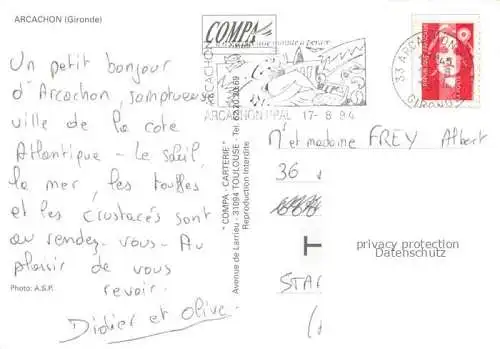 ARCACHON (Gironde)
Un petit bonjour
d'Arcachon, somptueuse
ville de la cote
Atlantique - Le soleil,
la mer, les touffes
et les crustacés sont
au rendez-vous - Au
plaisir de vous
revoir.
Didier et Olive.
Photo: A.S.P.
COMPA
" COMPA - CARTERIE "
Avenue de Larrieu - 31094 TOULOUSE - Tel. 62.20.20.69
Reproduction Interdite
ARCACHON
ARCACHON PPAL 17-8 94
33 ARCACHON
GIRONDE
M' et madame FREY Albert
36
privacy protection
Datenschutz
STAR